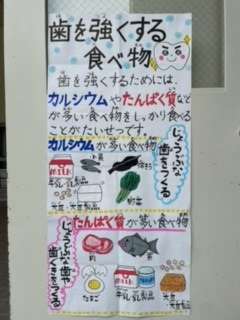 歯を強くする
食べ物
歯を強くするためには、
カルシウムやたんぱく質など
が多い食べ物をしっかり食べる
ことがたいせつです。
カルシウムが多い食べ物
じょうぶな
歯をつくる
小魚
牛乳・乳製品
大豆・大豆製品
野菜
たんぱく質が多い食べ物
じょうぶな歯や
歯ぐきをつくる
肉
魚
たまご
牛乳・乳製品
大豆・大豆製品